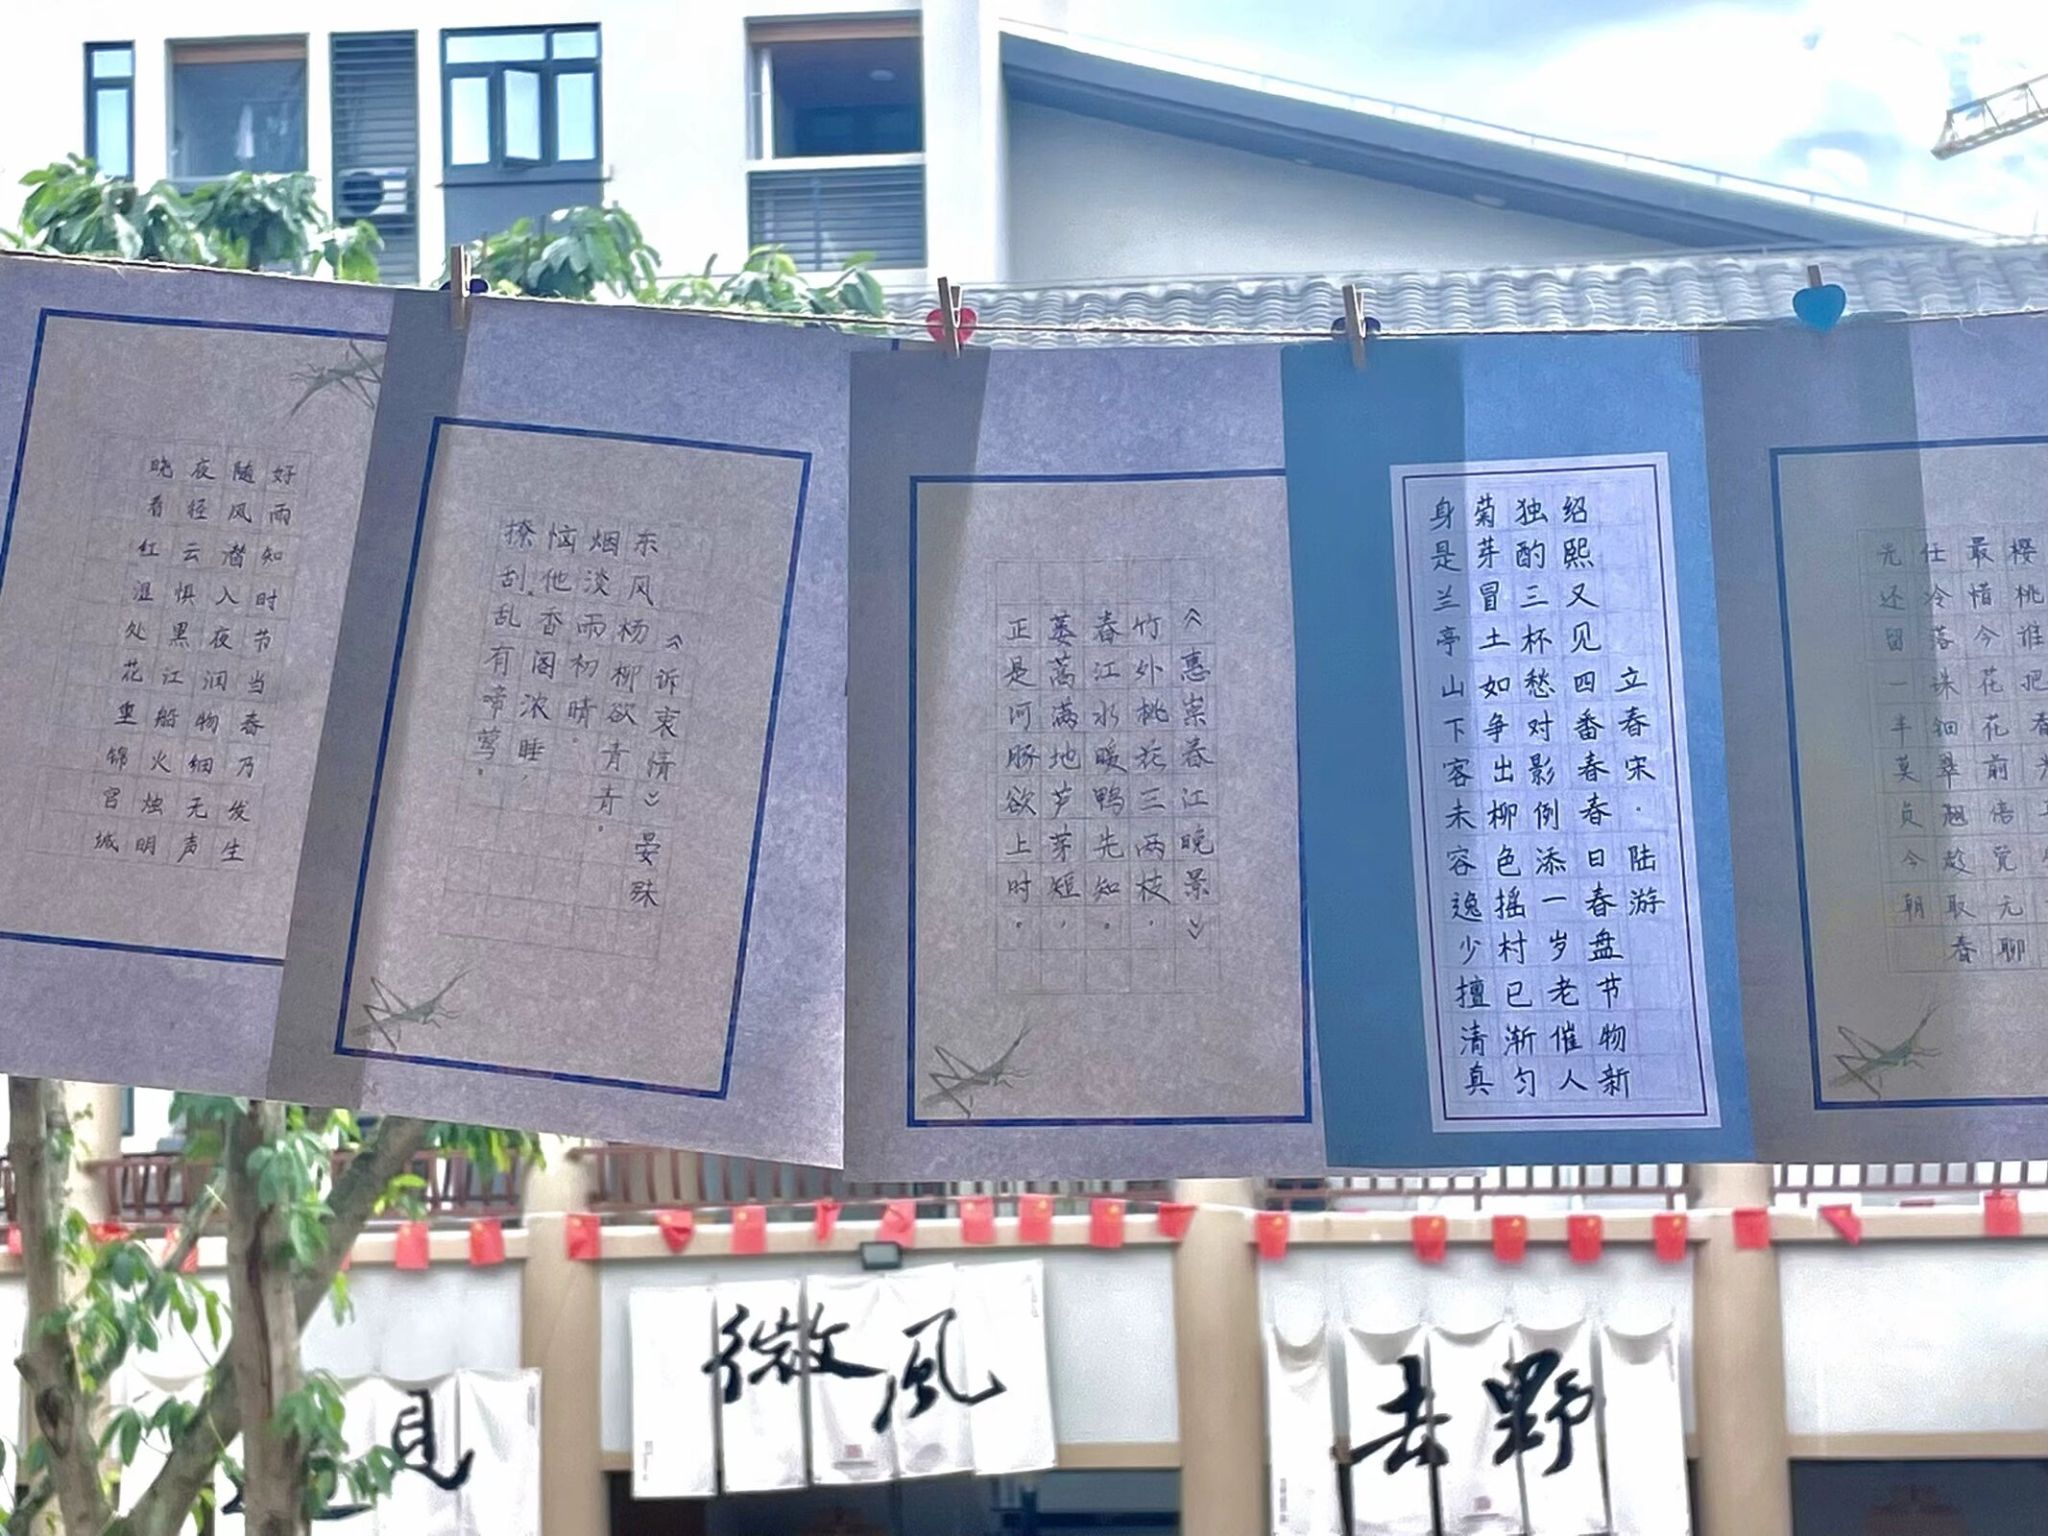 好雨知时节当春乃发生
随风潜入夜润物细无声
夜轻云惧黑江船火烛明
晓看红湿处花重锦官城
《诉衷情》晏殊
东风杨柳欲青青。
烟淡雨初晴。
恼他香阁浓睡，
撩刮乱有啼莺。
《惠崇春江晚景》
竹外桃花三两枝，
春江水暖鸭先知。
蒌蒿满地芦芽短，
正是河豚欲上时。
立春宋·陆游
绍熙又见四番春春日春盘节物新
独酌三杯愁对影例添一岁老催人
菊芽冒土如争出柳色摇村已渐匀
身是兰亭山下客未容逸少擅清真
樱桃谁把春
最惜今花花前倍觉无聊
任冷落珠细翠翘趁取春
光还留一半莫负今朝
见
微風
去野